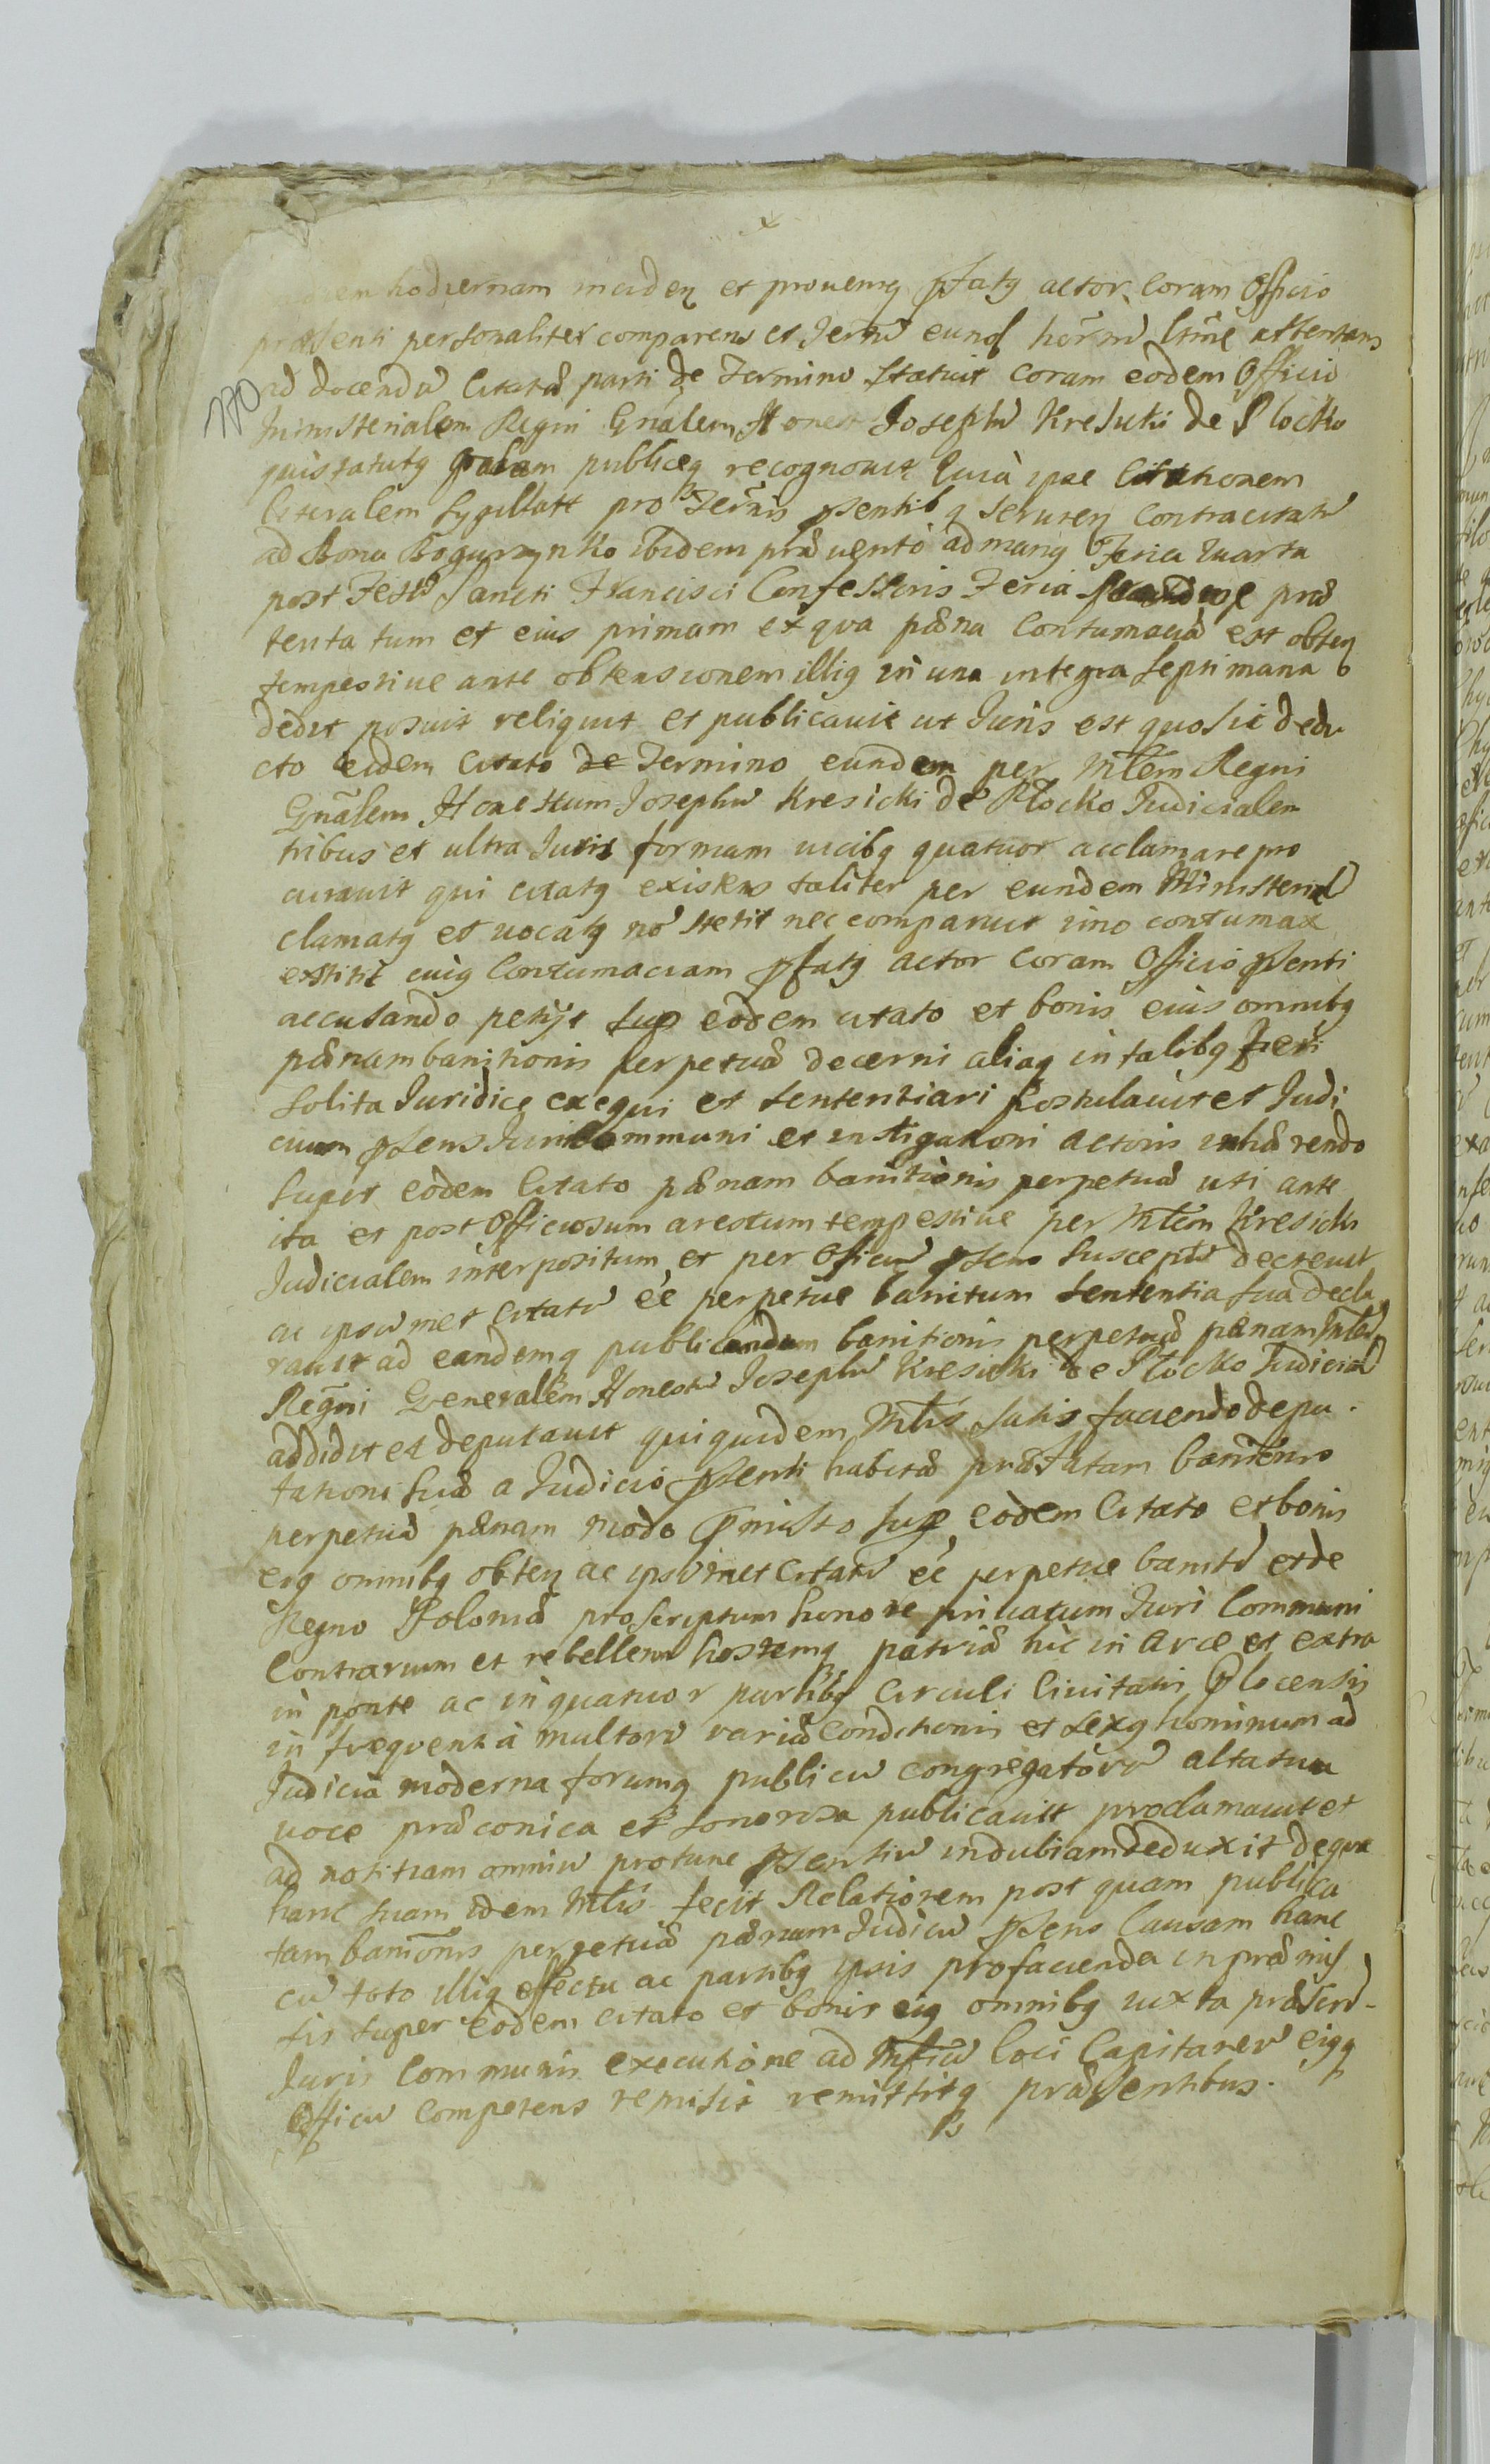 hodiernam inciden et proueniens pfatq actor coram Officio
præsenti personaliter comparens et Termū eund hōrnū ltīme attentans
170
ad docendū Citatæ parti de Termino Statuit coram eodem Officio
Ministerialem Regni Gnālem Honest Josephū Kresicki de Plocko
qui statutq palam publiceq recognouit Quià ipse Citationem
literalem sygillatt pro Ternis psentibq seruien contra citatū
ad Bona Bogurzynko ibidem præuento admanq Feria Quarta
post Festū Sancti Francisci Confessoris Feria præ
tenta tum et eius primam ex qva pæna Contumaciæ est obten
tempestiue ante obtensionem illiq in una integra septimana
dedit posuit reliquit et publicauit ut Juris est quo sic dedu
cto eidem Citato de Termino eundem per Mlem Regni
Gnālem Honestum Josephū Kresicki de Plocko Judicialem
tribus et ultra Juris formam uicibq quatuor acclamare pro
curauit qui citatq existens taliter per eundem Ministeriał
clamatq et uocatq nō stetit nec comparuit imo contumax
exstitit cuiq Contumaciam pfatq actor coram Officio psenti
accusando petijt sup eodem citato et bonis eius omnibq
pænam banitionis perpetuæ decerni aliaq in talibq fieri
solita Juridice exequi et sententiari postulauit et Judi
cium psens Juri Communi et instigationi actoris inhærendo
super eodem Citato pænam banitionis perpetuæ uti ante
ita et post Officiosum arestum tempestiue per Mlem Kresicki
Judicialem interpositum et per Officiū psens susceptū decreuit
ac ipsū met Citatū eē perpetue banitum sententia sua decla
rauit ad eandemq publicandam banitionis perpetuæ pænam Mlem
Regni Generalem Honestū Josephū Kresicki de Plocko Judiciał
addidit et deputauit qui quidem Mlis satis faciendo depu
tationi suæ a Judicio psenti habitæ præfatam banitionis
perpetuæ pænam modo pmisso sup eodem Citato et bonis
eiq omnibq obten ac ipsūmet Citatū eē perpetue banitū et de
Regno Poloniæ proscriptum honore priuatum Juri Communi
Contrarium et rebellem hostemq patriæ hic in arce et extra
in ponte ac in quatuor partibq Circuli Ciuitatis Plocensis
in freqventia multorū variæ Conditionis et sexq hominum ad
Judicia moderna forumq publicū congregatorū alta sua
uoce præconica et sonorosa publicauit proclamauit et
ad notitiam omniū protunc psentiū indubiam deduxit de qua
hanc suam idem Mlis fecit Relationem post quam publica
tam banionis perpetuæ pænam Judiciū psens Causam hanc
cū toto illiq effectu ac partibq ipsis pro facienda in præmis
sis super eodem citato et bonis eiq omnibq iuxta præscrip
Juris Communis executione ad Mficū loci Capitaneū eiqq
Officiū Competens remisit remittitq præsentibus.